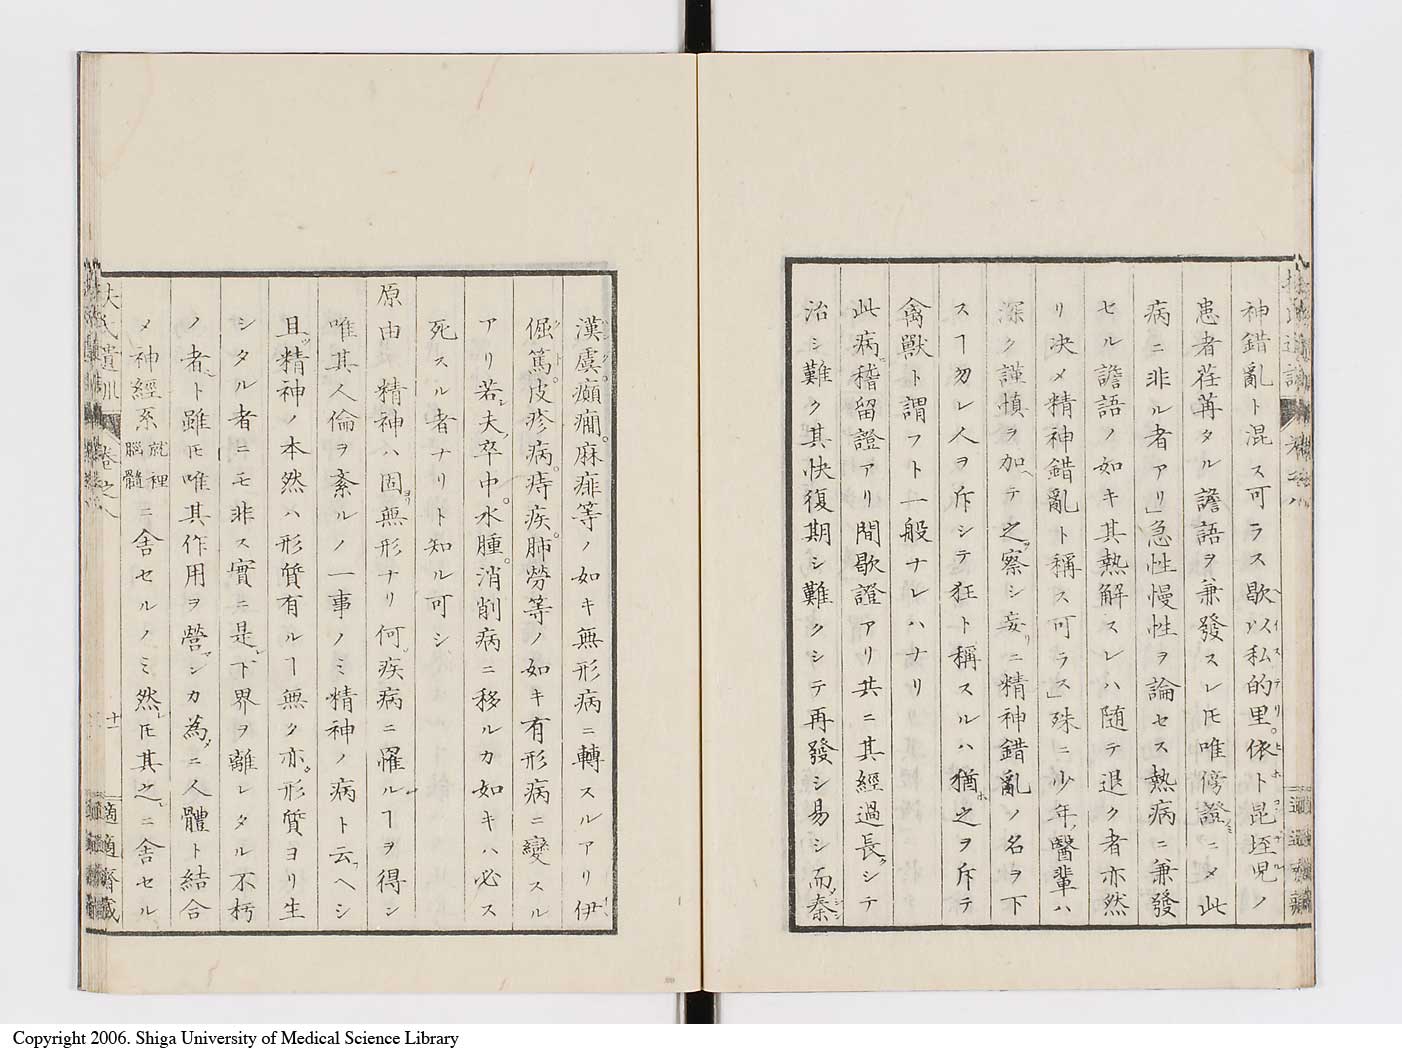 神錯亂ト混ス可ラス歇以私的里。依ト昆垤児ノ
患者荏苒タル譫語ヲ兼發スレ𪜈唯傍證ニメ此
病ニ非ル者アリ」急性慢性ヲ論セス熱病ニ兼發
セル譫語ノ如キ其熱解スレハ随テ退ク者亦然
リ决メ精神錯亂ト稱ス可ラス」殊ニ少年醫輩ハ
深ク謹慎ヲ加テ之察シ妄ニ精神錯亂ノ名ヲ下
スヿ勿レ人ヲ斥シテ狂ト稱スルハ猶之ヲ斥テ
禽獸ト謂フト一般ナレハナリ
此病稽留證アリ間歇證アリ共ニ其經過長シテ
治シ難ク其快復期シ難クシテ再發シ易シ而秦
漢虞。癲癇。麻痱等ノ如キ無形病ニ轉スルアリ伊
倔篤。皮疹病。痔疾。肺勞等ノ如キ有形病ニ變スル
アリ若夫卒中。水腫。消削病ニ移ルカ如キハ必ス
死スル者ナリト知ル可シ
原由 精神ハ固無形ナリ何疾病ニ罹ルヿヲ得ン
唯其人倫ヲ紊ルノ一事ノミ精神ノ病ト云ヘシ
且精神ノ本然ハ形質有ルヿ無ク亦形質ヨリ生
シタル者ニモ非ス實ニ是下界ヲ離レタル不朽
ノ者ト雖𪜈唯其作用ヲ營ンカ為ニ人體ト結合
メ神經系就裡腦髓ニ舍セルノミ然𪜈其之ニ舍セル
扶氏遺訓 卷之八 十一 適適齋藏